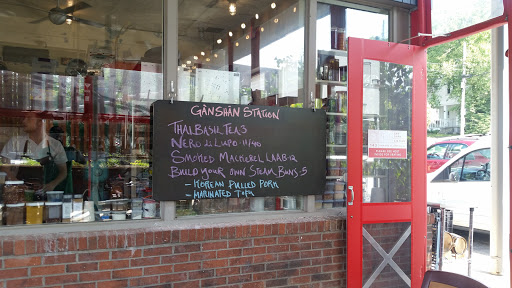 GÀNSHÀN STATION
THAI BASIL TEA 3
NERO di LUPO 11/40
SMOKED MACKEREL LAAB 12
BUILD YOUR OWN STEAM BUNS 5
- KOREAN PULLED PORK
- MARINATED TOFU